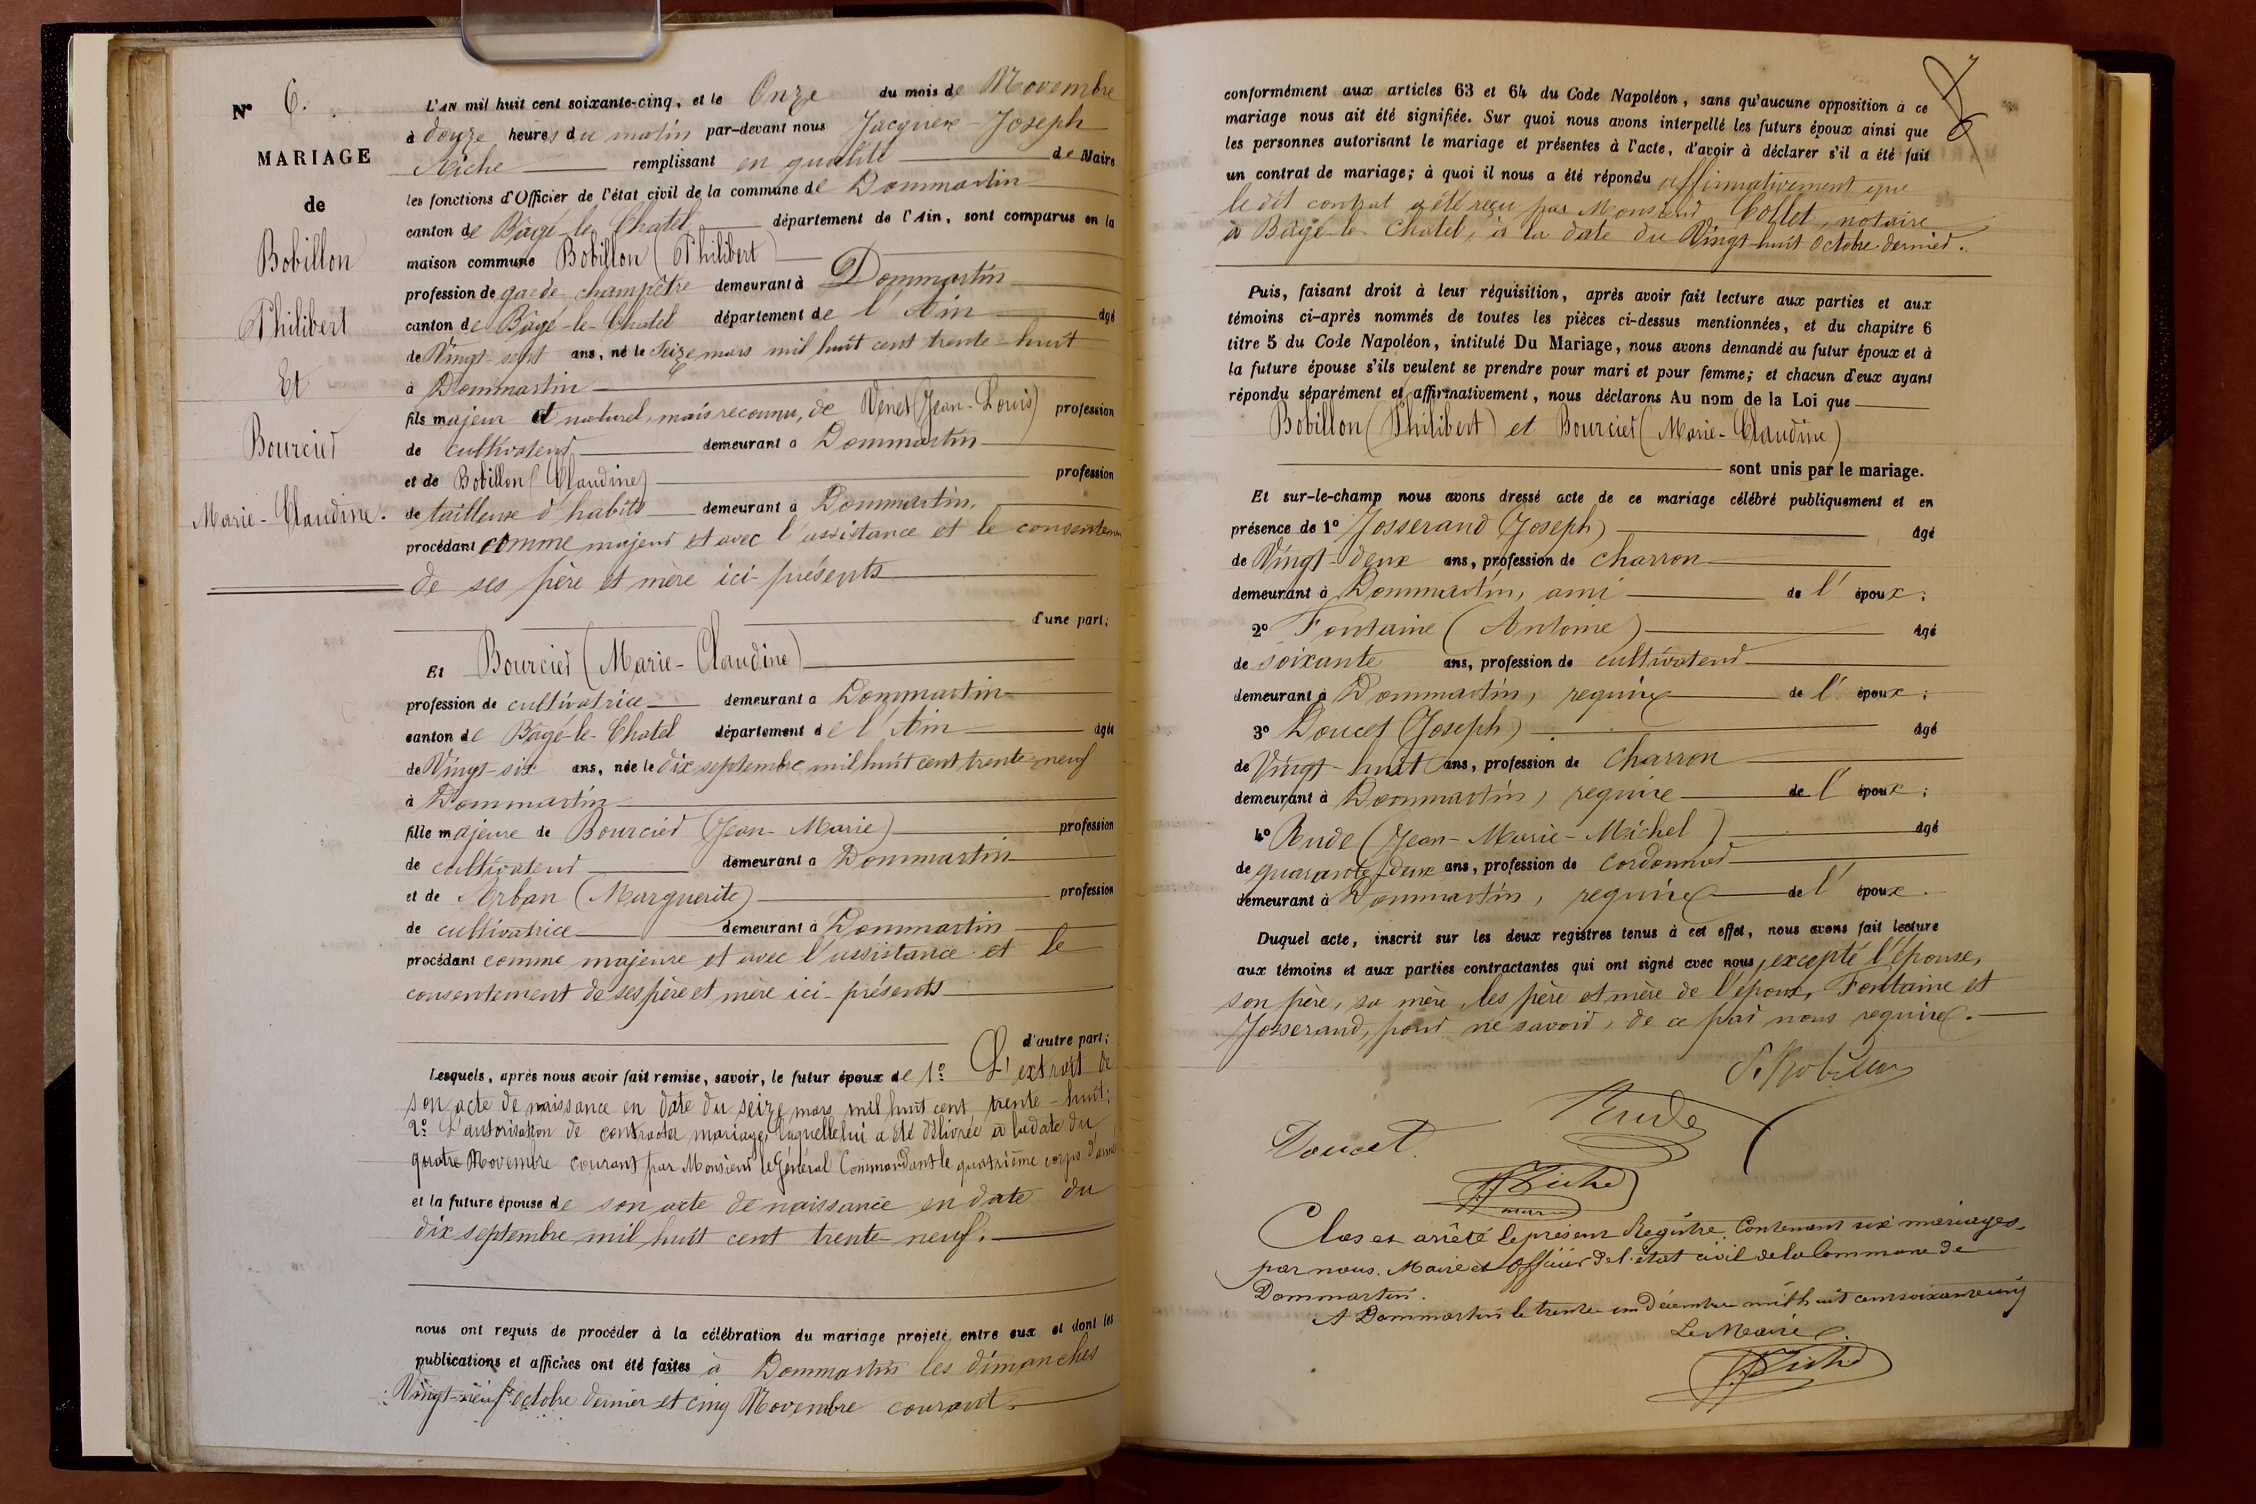 N° 6.
MARIAGE
de
Bobillon
Philibert
Et
Bourcier
Marie-Claudine.
L'AN mil huit cent soixante-cinq, et le Onze du mois de Novembre
à douze heures du matin par-devant nous Jacques-Joseph
Niche remplissant en qualité de Maire
les fonctions d'Officier de l'état civil de la commune de Dommartin
canton de Bâgé-le-Chatel département de l'Ain, sont comparus en la
maison commune Bobillon (Philibert)
profession de garde champêtre demeurant à Dommartin
canton de Bâgé-le-Chatel département de l'Ain âgé
de Vingt-sept ans, né le seize mars mil huit cent trente-huit
à Dommartin
fils majeur et naturel, mais reconnu, de Venet (Jean-Louis) profession
de cultivateur demeurant à Dommartin
et de Bobillon (Claudine) profession
de tailleuse d'habits demeurant à Dommartin,
procédant comme majeur et avec l'assistance et le consentem
de ses père et mère ici-présents
d'une part;
Et Bourcier (Marie-Claudine)
profession de cultivatrice demeurant à Dommartin
canton de Bâgé-le-Chatel département de l'Ain âgée
de Vingt-six ans, née le dix septembre mil huit cent trente-neuf
à Dommartin
fille majeure de Bourcier (Jean-Marie) profession
de cultivateur demeurant à Dommartin
et de Arban (Marguerite) profession
de cultivatrice demeurant à Dommartin
procédant comme majeure et avec l'assistance et le
consentement de ses père et mère ici-présents
d'autre part;
Lesquels, après nous avoir fait remise, savoir, le futur époux de 1° L'extrait de
son acte de naissance en date du seize mars mil huit cent trente-huit;
2° L'autorisation de contracter mariage, laquelle lui a été délivrée à la date du
quatre Novembre courant par Monsieur le Général Commandant le quatrième corps d'armé
et la future épouse de son acte de naissance en date du
dix septembre mil huit cent trente-neuf.
nous ont requis de procéder à la célébration du mariage projeté entre eux et dont les
publications et affiches ont été faites à Dommartin les dimanches
Vingt-neuf octobre dernier et cinq Novembre courant.
conformément aux articles 63 et 64 du Code Napoléon, sans qu'aucune opposition à ce
mariage nous ait été signifiée. Sur quoi nous avons interpellé les futurs époux ainsi que
les personnes autorisant le mariage et présentes à l'acte, d'avoir à déclarer s'il a été fait
un contrat de mariage; à quoi il nous a été répondu affirmativement que
le dit contrat a été reçu par Monsieur Collet, notaire
à Bâgé-le-Chatel, à la date du Vingt-huit Octobre dernier.
Puis, faisant droit à leur réquisition, après avoir fait lecture aux parties et aux
témoins ci-après nommés de toutes les pièces ci-dessus mentionnées, et du chapitre 6
titre 5 du Code Napoléon, intitulé Du Mariage, nous avons demandé au futur époux et à
la future épouse s'ils veulent se prendre pour mari et pour femme; et chacun d'eux ayant
répondu séparément et affirmativement, nous déclarons Au nom de la Loi que
Bobillon (Philibert) et Bourcier (Marie-Claudine)
sont unis par le mariage.
Et sur-le-champ nous avons dressé acte de ce mariage célébré publiquement et en
présence de 1° Josserand (Joseph) âgé
de Vingt-deux ans, profession de charron
demeurant à Dommartin, ami de l'époux;
2° Fontaine (Antoine) âgé
de soixante ans, profession de cultivateur
demeurant à Dommartin, requis de l'époux;
3° Doucet (Joseph) âgé
de Vingt-huit ans, profession de charron
demeurant à Dommartin, requis de l'époux;
4° Rude (Jean-Marie-Michel) âgé
de quarante-deux ans, profession de cordonnier
demeurant à Dommartin, requis de l'époux.
Duquel acte, inscrit sur les deux registres tenus à cet effet, nous avons fait lecture
aux témoins et aux parties contractantes qui ont signé avec nous, excepté l'épouse,
son père, sa mère, les père et mère de l'époux, Fontaine et
Josserand, pour ne savoir, de ce par nous requis.
P. Bobillon
Rude
Doucet
Maire
Clos et arrêté le présent Registre Contenant six mariages.
par nous. Maire et Officier de l'état civil de la Commune de
Dommartin.
A Dommartin le trente un Décembre mil huit cent soixante cinq
Le Maire